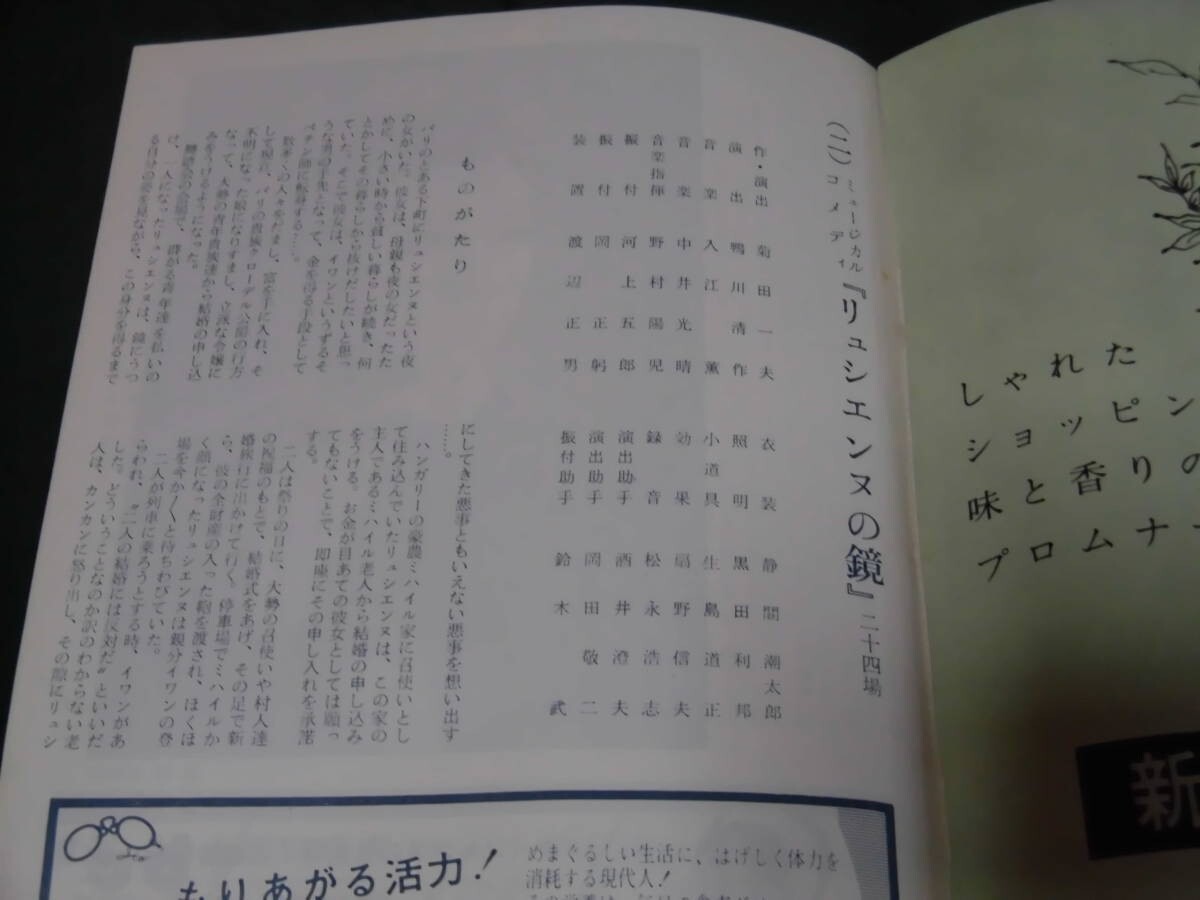 (二) ミュージカル
コメディ 『リュシエンヌの鏡』 二十四場
作・演出 菊田一夫
演出 鴨川清作
音楽 入江薫
音楽 中井光晴
音楽指揮 野村陽児
振付 河上五郎
振付 岡正躬
装置 渡辺正男
衣装 静間潮太郎
照明 黒田利邦
小道具 生島道正
効果 扇野信夫
録音 松永浩志
演出助手 酒井澄夫
演出助手 岡田敬二
振付助手 鈴木武
ものがたり
パリのとある下町にリュシエンヌという夜
の女がいた。彼女は、母親も夜の女だったた
めに、小さい時から貧しい暮らしが続き、何
とかしてその暮らしから抜けだしたいと思っ
ていた。そこで彼女は、イワンというずるそ
うな男の手先となって、金を得る手段として
ペテン師に転身する……。
数多くの人々をだまし、富を手に入れ、そ
して現在、パリの貴族クローデル公爵の行方
不明になった娘になりすまし、立派な令嬢に
なって、大勢の青年貴族達から結婚の申し込
みをうけるようになった。
舞踏会の会場で、群がる青年達を払いの
け、一人になったリュシエンヌは、鏡にうつ
る自分の姿を見ながら、この身分を得るまで
にしてきた悪事ともいえない悪事を想い出す
……。
ハンガリーの豪農ミハイル家に召使いとし
て住み込んでいたリュシエンヌは、この家の
主人であるミハイル老人から結婚の申し込み
をうける。お金が目あての彼女としては願っ
てもないことで、即座にその申し入れを承諾
する。
二人は祭りの日に、大勢の召使いや村人達
の祝福のもとで、結婚式をあげ、その足で新
婚旅行に出かけて行く。停車場でミハイルか
ら、彼の全財産の入った鞄を渡され、ほくほ
く顔になったリュシエンヌは親分イワンの登
場を今か〱と待ちわびていた。
二人が列車に乗ろうとする時、イワンがあ
らわれ、〝二人の結婚には反対だ〟といいだ
した。どういうことなのか訳のわからない老
人は、カンカンに怒り出し、その隙にリュシ
もりあがる活力!
めまぐるしい生活に、はげしく体力を
消耗する現代人!
しゃれた
ショッピン
味と香りの
プロムナー
新